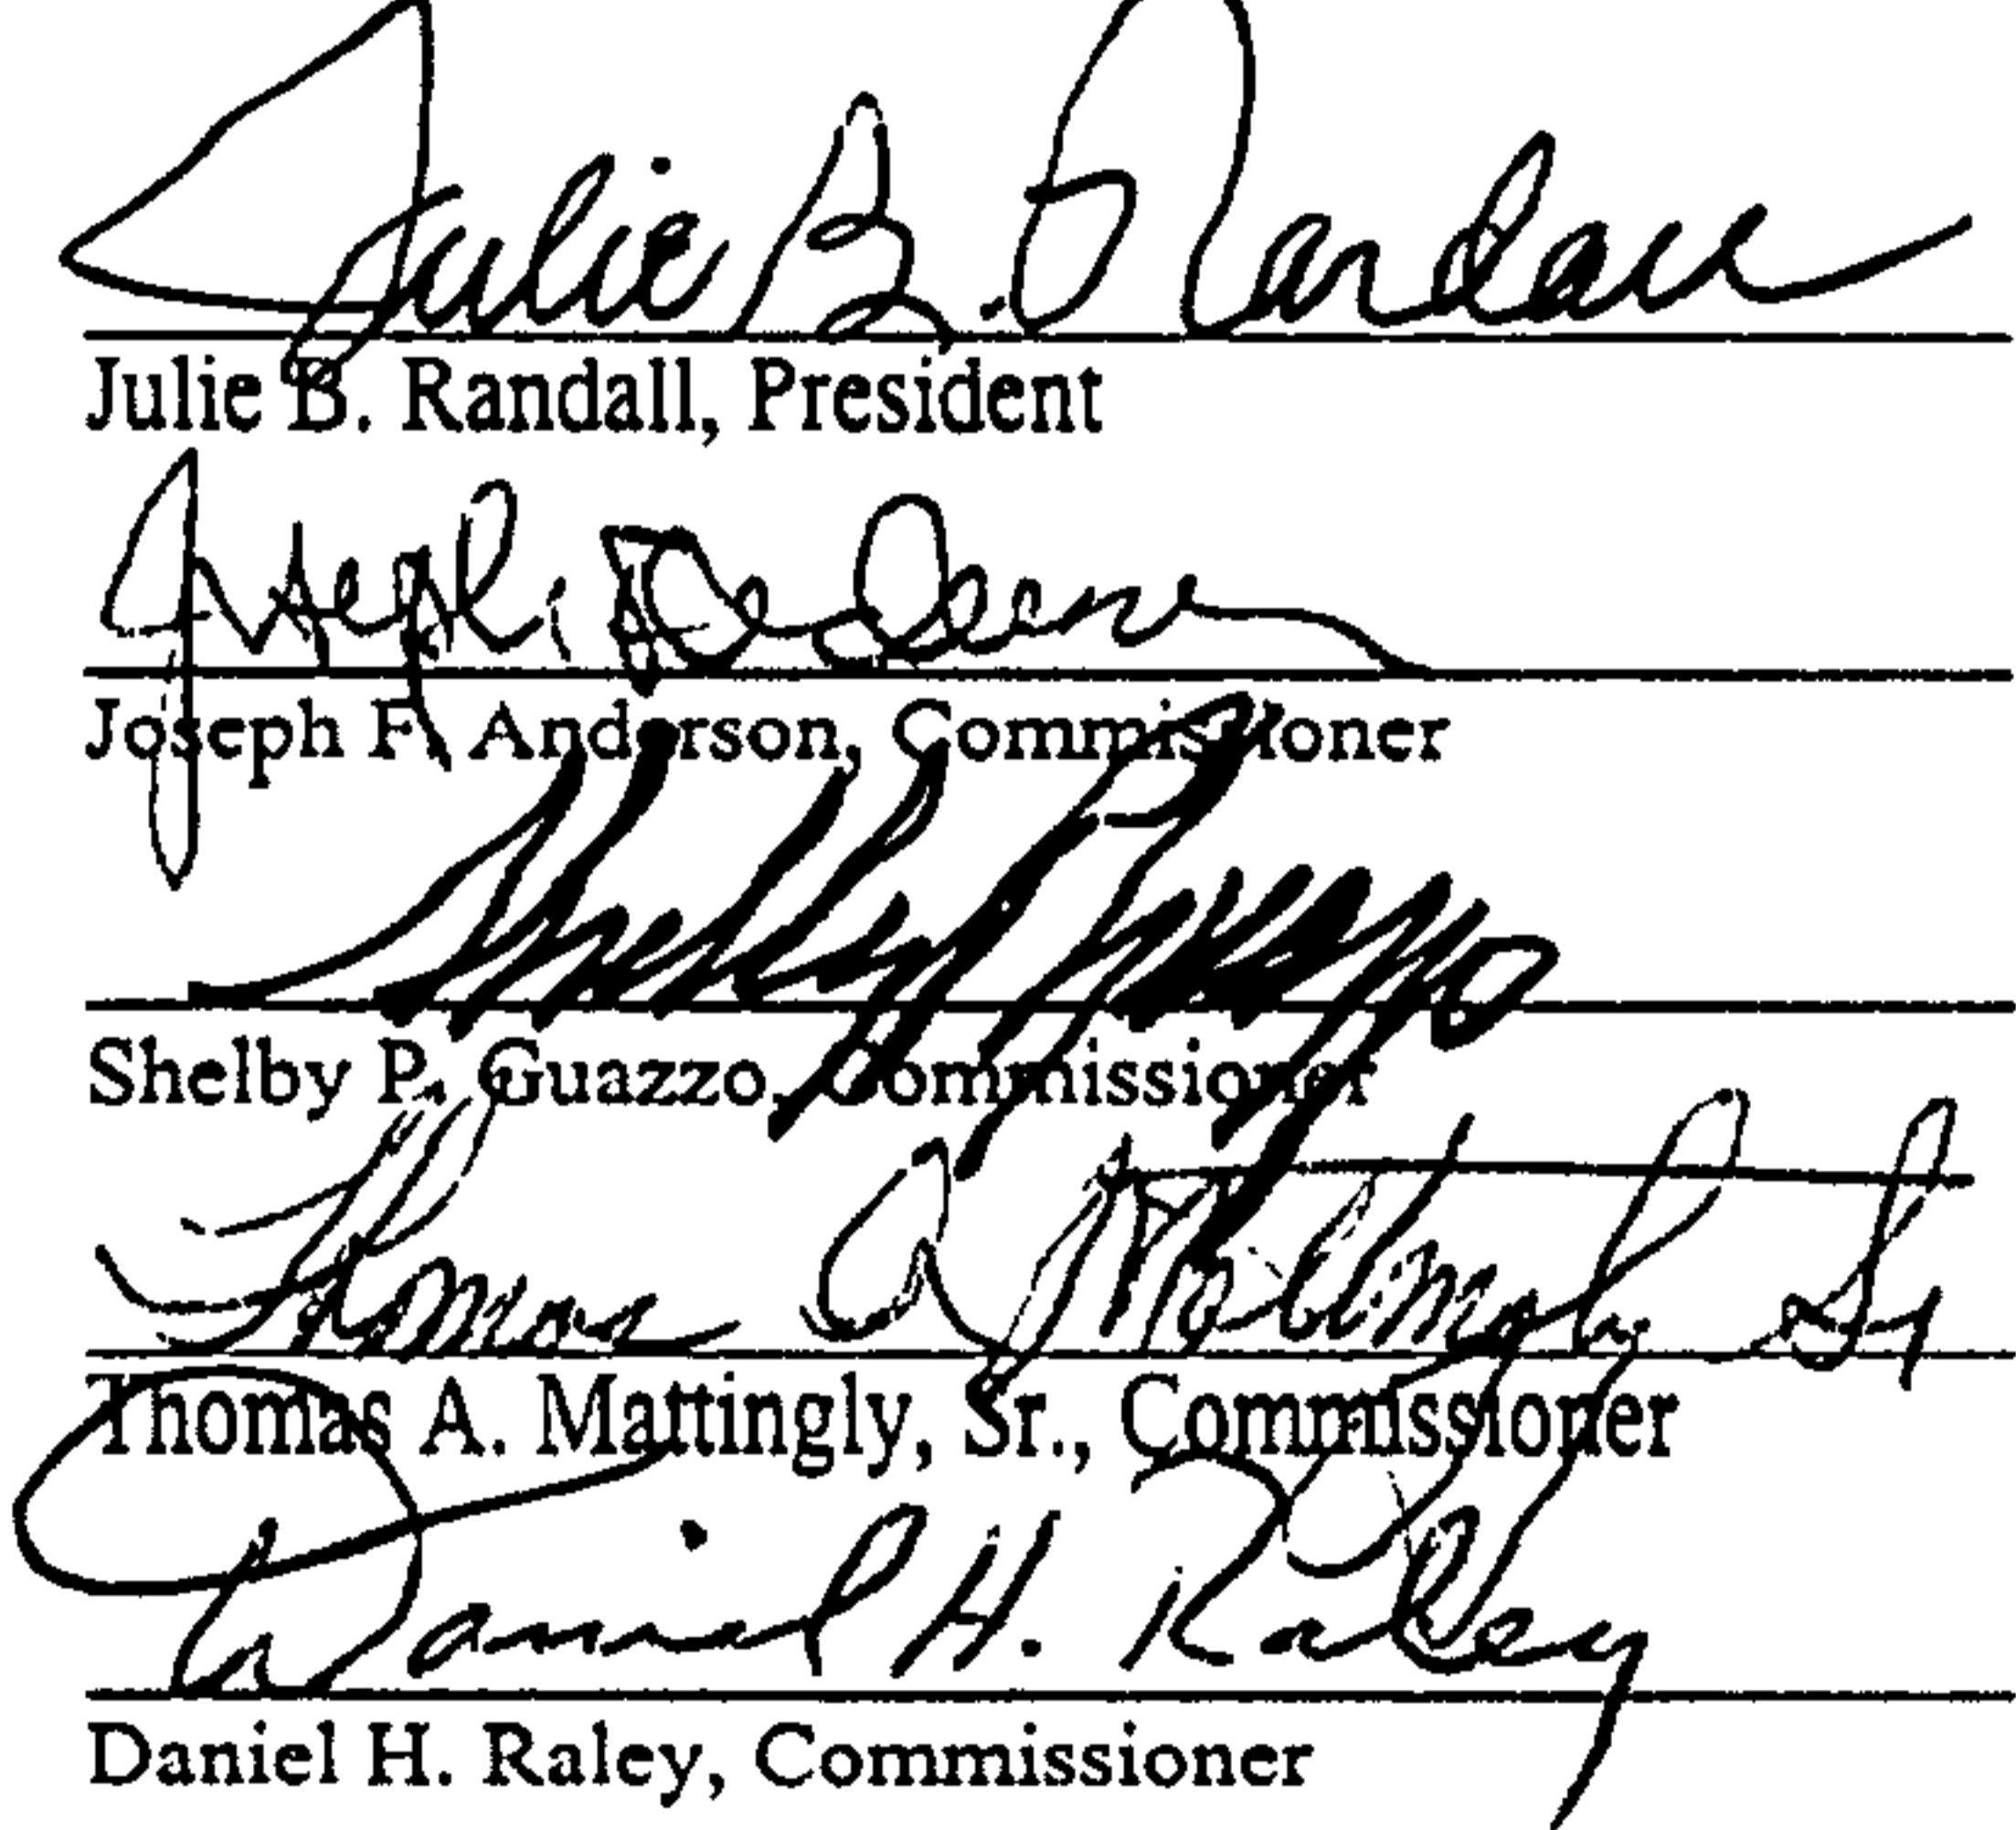 Julie B. Randall
Julie B. Randall, President
Joseph F. Anderson, Commissioner
Shelby P. Guazzo
Shelby P. Guazzo, Commissioner
Thomas A. Mattingly Sr
Thomas A. Mattingly, Sr., Commissioner
Daniel H. Raley
Daniel H. Raley, Commissioner